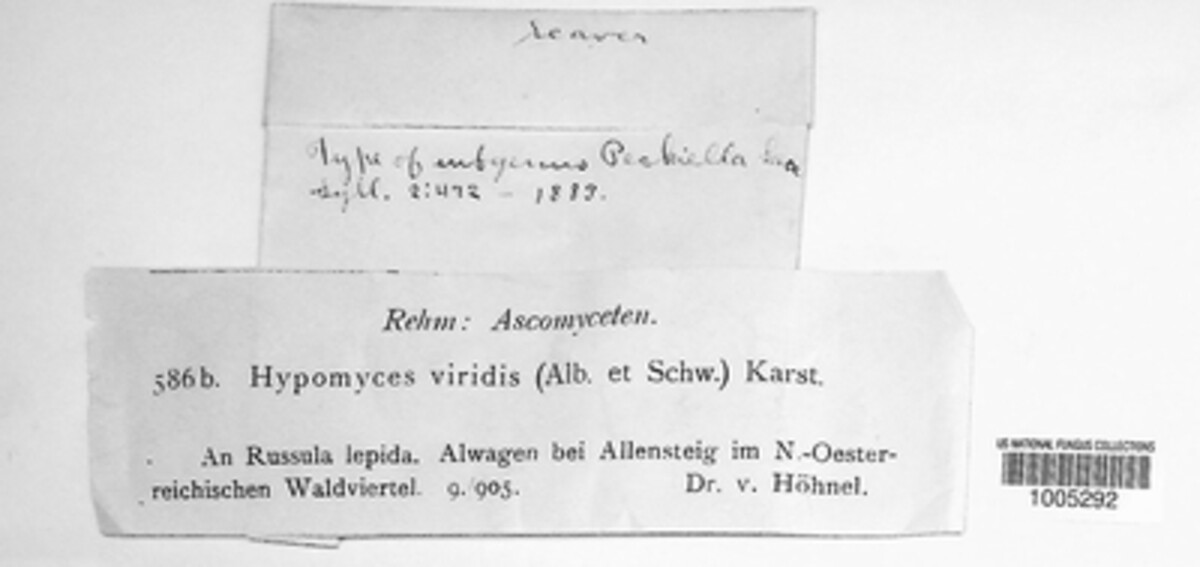 Type of subgenus Peckiella Sacc
Syll. 2:472 - 1883.
Rehm: Ascomyceten.
586b. Hypomyces viridis (Alb. et Schw.) Karst.
An Russula lepida. Alwagen bei Allensteig im N.-Oester-
reichischen Waldviertel. 9./905. Dr. v. Höhnel.
US NATIONAL FUNGUS COLLECTIONS
1005292